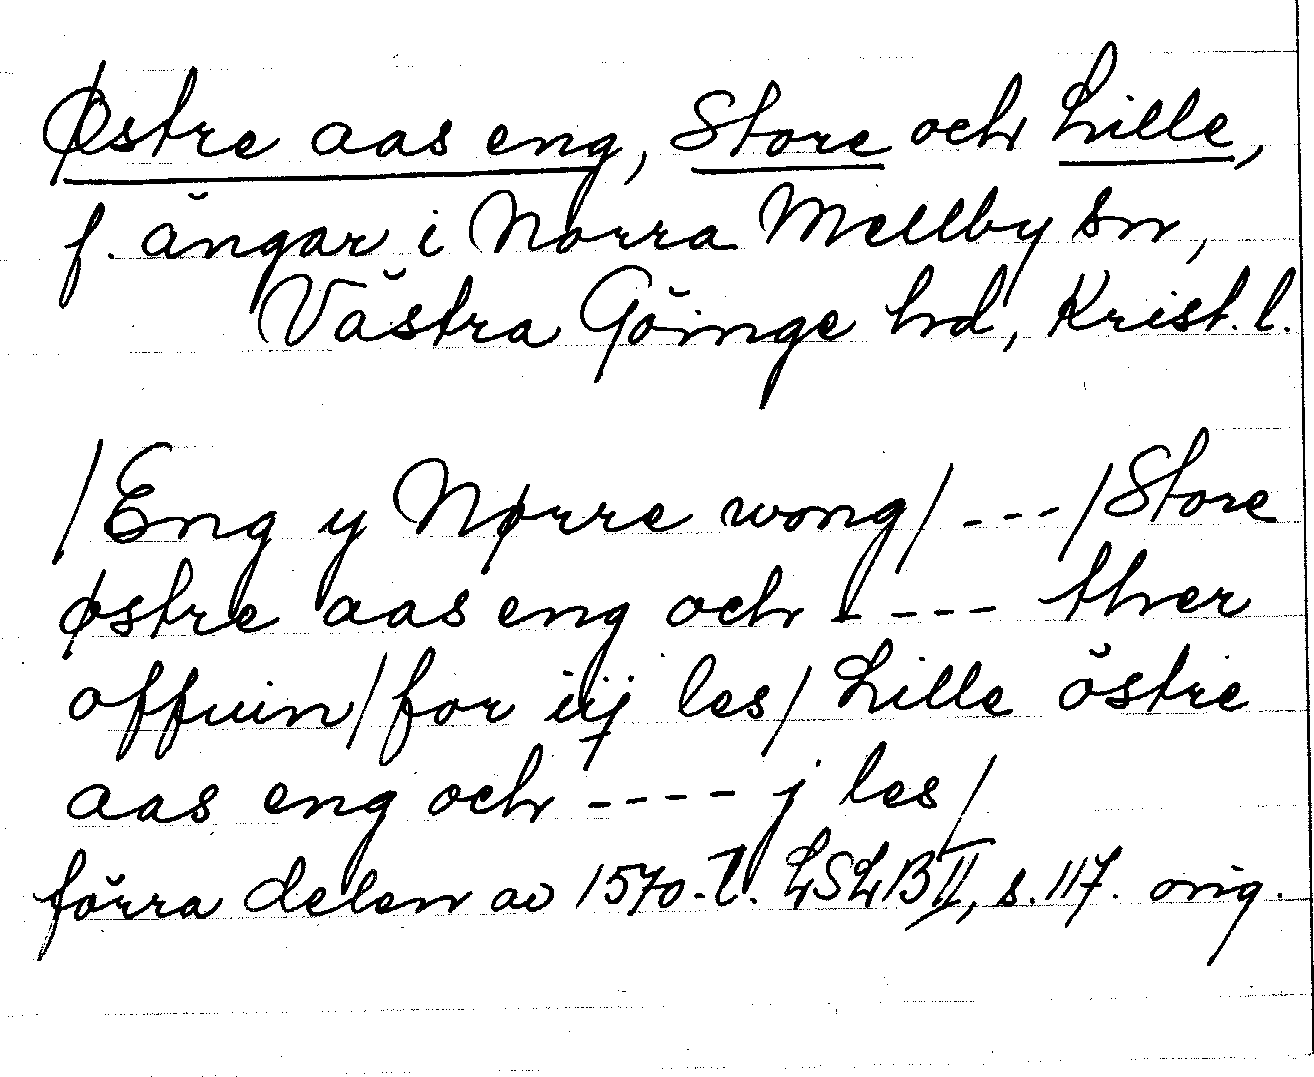 Østre aas eng, Store och Lille,
f. ängar i Norra Mellby sn,
Västra Göinge hd, Krist. l.
/Eng y Nørre wong/ ---/Store
østre aas eng och ---- ther
offuin/for iij les/ Lille östre
aas eng och ---- j les/
förra delen av 1570-t. LSLB II, s. 117. orig.